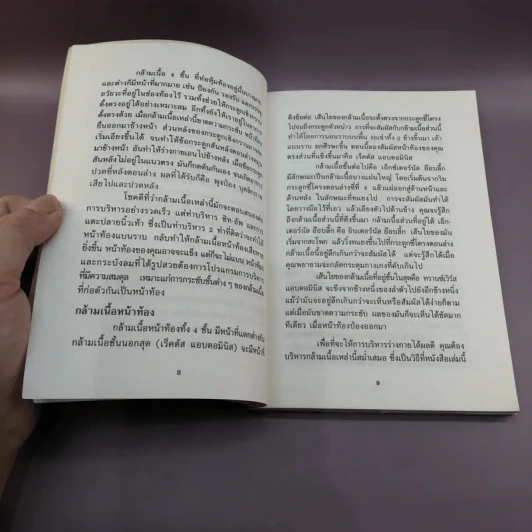 กล้ามเนื้อ 4 ชั้น ที่ห่อหุ้มท้องอยู่นั้นบางตาม
และต่างก็มีหน้าที่มากมาย เช่น ป้องกัน รองรับ
อวัยวะที่อยู่ในช่องท้องไว้ รวมทั้งช่วยให้กระดูก
ตั้งตรงอยู่ได้อย่างเหมาะสม อีกทั้งยังให้ร่างอยู่ใน
ตั้งตรงด้วย เมื่อกล้ามเนื้อเหล่านี้ขาดความกระชับ หน้าท้อง
ยื่นออกมาข้างหน้า ส่วนหลังของกระดูกเชิงกราน
เริ่มเอียงขึ้นได้ จนทำให้ข้อกระดูกสันหลังตอนล่าง
มาข้างหน้า อันทำให้ร่างกายเอนไปข้างหลัง เมื่อข้อกระดูก
สันหลังไม่อยู่ในแนวตรง มันก็กดดันกันเอง จนเกิดอาการ
ปวดที่หลังตอนล่าง ผลที่ได้รับก็คือ พุงป่อง บุคลิก
เสียไปและปวดหลัง
โชคดีที่ว่ากล้ามเนื้อเหล่านี้มักจะตอบสนองต่อ
การบริหารอย่างรวดเร็ว แต่ท่าบริหาร ซิท-อัพ และ
แตะปลายนิ้วเท้า ซึ่งเป็นท่าบริหาร 2 ท่าที่คิดว่าจะทำให้
หน้าท้องแบนราบ กลับทำให้กล้ามเนื้อหน้าท้องเสีย
ยิ่งขึ้น หน้าท้องของคุณอาจจะแข็ง แต่ก็จะไม่แบน หน้าท้อง
และกระบังลมที่ได้รูปสวยต้องการโปรแกรมการบริหาร
ที่มีความสมดุล เหมาะแก่การกระชับชั้นต่าง ๆ ของกล้ามเนื้อ
ที่ก่อตัวกันเป็นหน้าท้อง
กล้ามเนื้อหน้าท้อง
กล้ามเนื้อหน้าท้องทั้ง 4 ชั้น มีหน้าที่แตกต่างกัน
กล้ามเนื้อชั้นนอกสุด (เร็คตัส แอบดอมินิส) จะมีหน้าที่
8
ดึงข้อต่อ เส้นใยของกล้ามเนื้อระตั้งตรงจากกระดูกซี่โครง
ไปจนถึงกระดูกหัวหน่าว การที่จะสัมผัสกับกล้ามเนื้อส่วนนี้
ทำได้โดยการนอนราบบนพื้น งอเข่าทั้ง 2 ข้างขึ้นมา เท้า
แบนราบ ยกศีรษะขึ้น ตอนนี้ลองสัมผัสหน้าท้องของคุณ
ตรงส่วนที่แข็งขึ้นมาคือ เร็คตัส แอบดอมินิส
กล้ามเนื้อชั้นต่อไปคือ เอ็กซ์เตอร์นัล อ๊อบลี้ก
มีลักษณะเป็นกล้ามเนื้อบางแผ่นใหญ่ โดยเริ่มต้นจากริม
กระดูกซี่โครงตอนล่างซี่ที่ 8 แล้วแผ่ออกสู่ด้านหน้าและ
ด้านหลัง ในลักษณะที่ทแยงลงไป การจะสัมผัสมันทำได้
โดยวางมือไว้ที่เอว แล้วเอียงตัวไปด้านข้าง คุณจะรู้สึก
ถึงกล้ามเนื้อส่วนนี้ที่ตึงขึ้นมา กล้ามเนื้อส่วนที่อยู่ใต้ เอ็กซ์-
เตอร์นัล อ๊อบลี้ก คือ อินเตอร์นัล อ๊อบลี้ก เส้นใยของมัน
เริ่มจากสะโพก แล้ววิ่งทแยงขึ้นไปที่กระดูกซี่โครงตอนล่าง
กล้ามเนื้อนี้อยู่ลึกเกินกว่าจะสัมผัสได้ แต่จะรู้สึกได้เมื่อ
คุณพยายามจะกลัดกระดุมกางเกงที่คับเกินไป
เส้นใยของกล้ามเนื้อที่อยู่ชั้นในสุดคือ ทรานซ์เวิร์ส
แอบดอมินิส จะขึงจากข้างหนึ่งของลำตัวไปยังอีกข้างหนึ่ง
แม้ว่ามันจะอยู่ลึกเกินกว่าจะเห็นหรือสัมผัสได้ง่ายก็ตาม
แต่เมื่อมันขาดความกระชับ ผลของมันก็จะเห็นได้ชัดมาก
ทีเดียว เมื่อหน้าท้องป่องออกมา
เพื่อที่จะให้การบริหารร่างกายได้ผลดี คุณต้อง
บริหารกล้ามเนื้อเหล่านี้สม่ำเสมอ ซึ่งเป็นวิธีที่หนังสือเล่มนี้
9